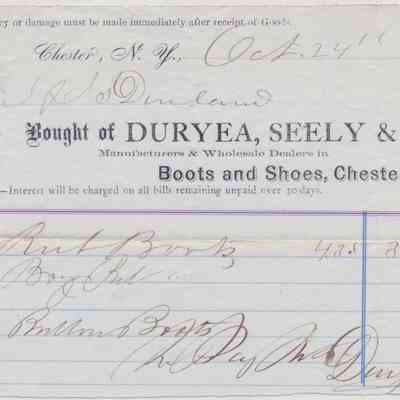 cy or damage must be made immediately after receipt of Goods.
Chester, N. Y., Oct. 24th
Bought of DURYEA, SEELY &
Manufacturers & Wholesale Dealers in
Boots and Shoes, Cheste
—Interest will be charged on all bills remaining unpaid over 30 days.
Rub Boots
Boy
Button Boots
Pay